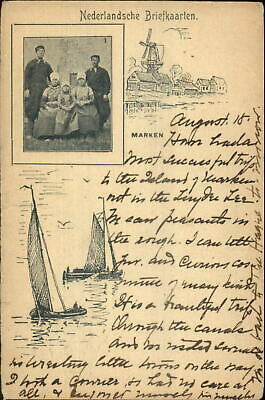 Nederlandsche Briefkaarten.
MARKEN
August 18.
Most successful trip
to the Island of Marken
out in the Zuyder Zee.
We saw peasants in
the rough. I can tell
you, and Curious cos-
tumes of many kinds
It is a beautiful trip
through the canals
and we visited several
interesting little towns on the way
I took a Courier, so had no care at
all, & enjoyed myself